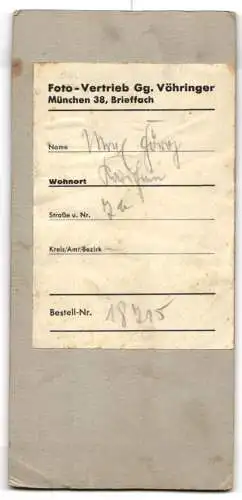 Foto-Vertrieb Gg. Vöhringer
München 38, Brieffach
Name
Wohnort
Straße u. Nr.
Kreis/Amt/Bezirk
Bestell-Nr. 18715